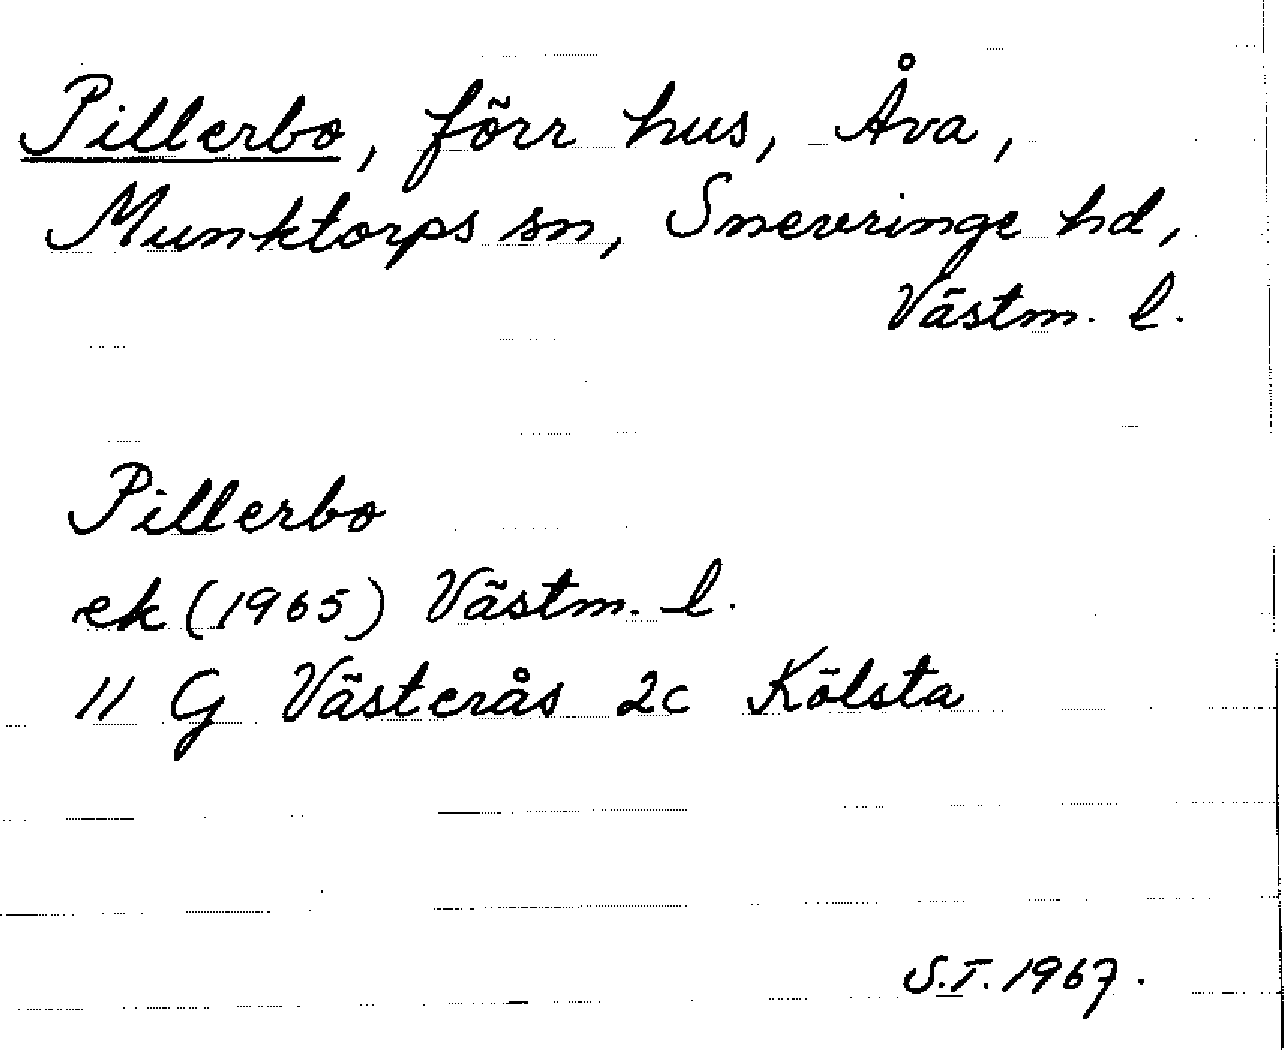 Pillerbo, förr hus, Åva,
Munktorps sn, Snevringe hd,
Västm. l.
Pillerbo
ek (1965) Västm. l.
11 G Västerås 2c Kölsta
S.T. 1967.